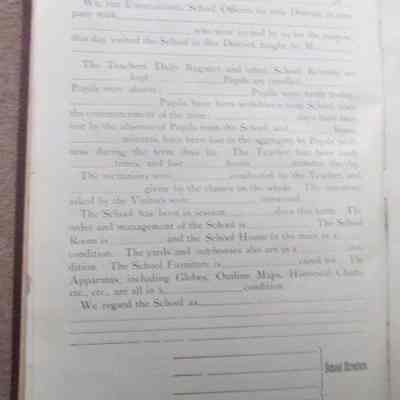 We, the undersigned, School Officers in this District, in company with
who were invited by us for the purpose,
this day visited the School in this District, taught by M
The Teachers' Daily Register and other School Records are
kept. Pupils are enrolled.
Pupils were absent; Pupils were tardy today.
Pupils have been withdrawn from School since
the commencement of the term; days have been
lost by the absence of Pupils from the School, and hours,
minutes, have been lost in the aggregate by Pupils tardiness
during the term thus far. The Teacher has been tardy
times, and lost hours minutes thereby.
The recitations were conducted by the Teacher, and
given by the classes on the whole. The questions
asked by the Visitors were answered.
The School has been in session days this term. The
order and management of the School is The School
Room is and the School House in the main in a
condition. The yards and outhouses also are in a condition.
The School Furniture is cared for. The
Apparatus, including Globes, Outline Maps, Historical Charts,
etc., etc., are all in a condition.
We regard the School as
School Directors.